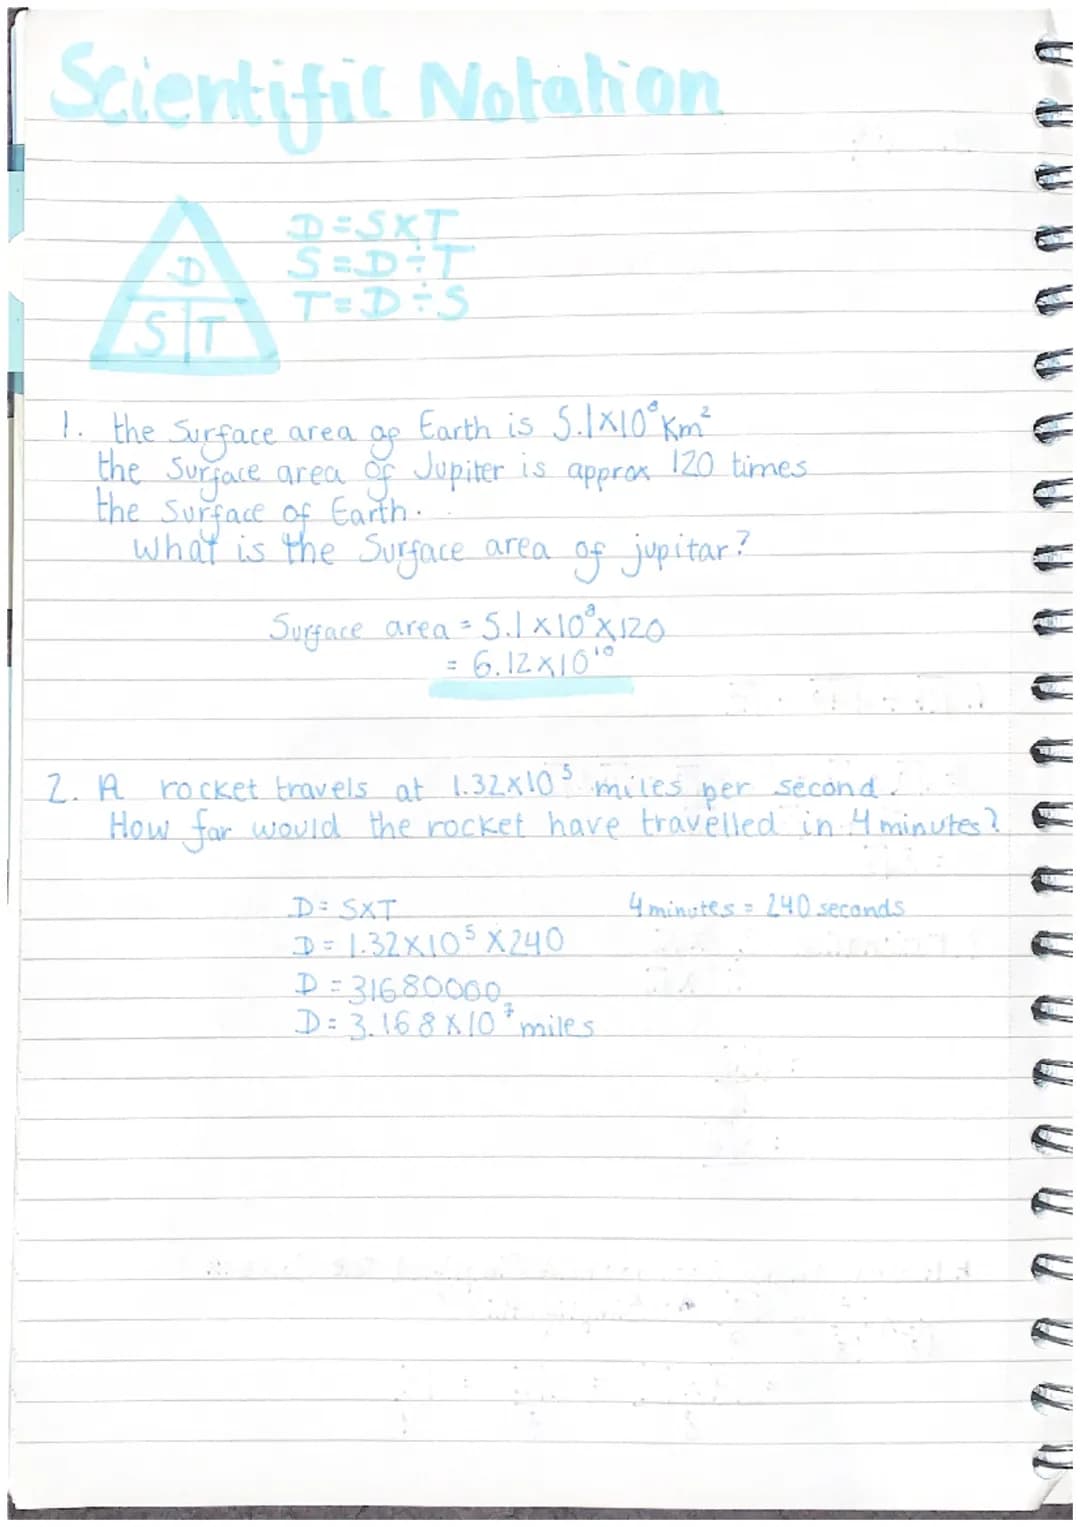 Scientific Notation
D
S T
D=S×T
S=D÷T
T=D÷S
1. the Surface area of Earth is 5.1×10⁸ Km²
the Surface area of Jupiter is approx 120 times
the Surface of Earth.
What is the Surface area of jupitar?
Surface area = 5.1×10⁸×120
= 6.12×10¹⁰
2. A rocket travels at 1.32×10⁵ miles per second.
How far would the rocket have travelled in 4 minutes?
D= S×T
4 minutes = 240 seconds
D= 1.32×10⁵×240
D=31680000
D= 3.168×10⁷ miles